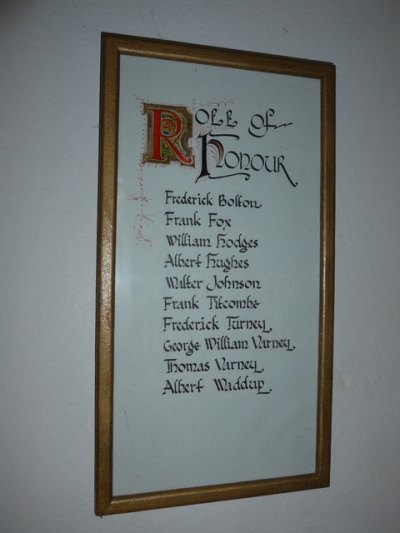 Roll of
Honour
Frederick Bolton
Frank Fox
William Hodges
Albert Hughes
Walter Johnson
Frank Titcombe
Frederick Turney
George William Varney
Thomas Varney
Albert Waddup